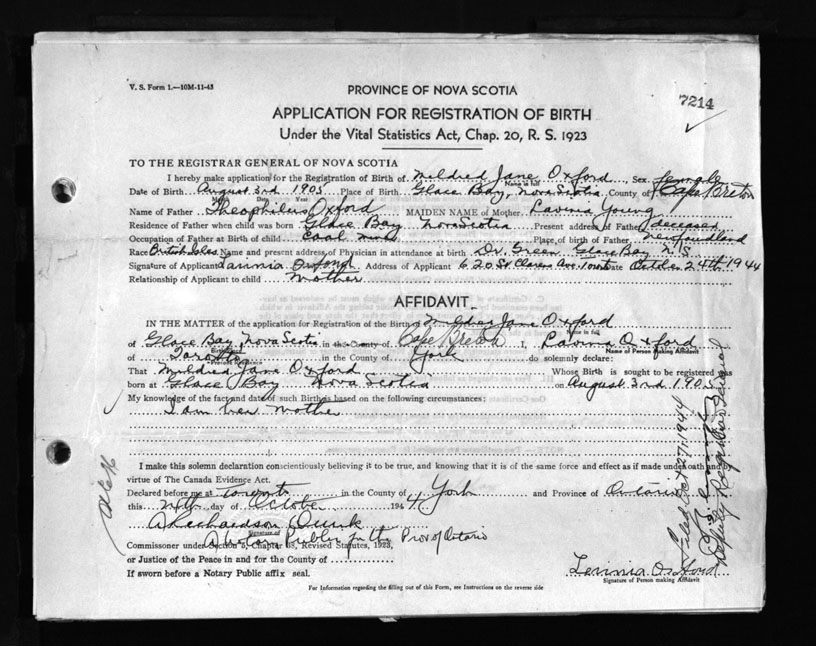 V. S. Form 1.—10M-11-43
PROVINCE OF NOVA SCOTIA
7214
APPLICATION FOR REGISTRATION OF BIRTH
Under the Vital Statistics Act, Chap. 20, R. S. 1923
TO THE REGISTRAR GENERAL OF NOVA SCOTIA
I hereby make application for the Registration of Birth of Mildred Jane Oxford, Sex female
Name in full
Date of Birth August 3rd 1905 Place of Birth Glace Bay, Nova Scotia County of Cape Breton
Month Day Year
Name of Father Theophilus Oxford MAIDEN NAME of Mother Lavinia Young
Residence of Father when child was born Glace Bay Nova Scotia Present address of Father deceased
Occupation of Father at Birth of child coal Place of birth of Father Newfoundland
Race British Isles Name and present address of Physician in attendance at birth Dr. Green Glace Bay N.S.
Signature of Applicant Lavinia Oxford Address of Applicant 620 St Clarens Ave. Toronto Date October 24th 1944
Relationship of Applicant to child mother
AFFIDAVIT
IN THE MATTER of the application for Registration of the Birth of Mildred Jane Oxford
Name in full
of Glace Bay, Nova Scotia in the County of Cape Breton I, Lavinia Oxford
Name of Person making Affidavit
of Toronto in the County of York do solemnly declare:
That Mildred Jane Oxford Whose Birth is sought to be registered was
born at Glace Bay Nova Scotia on August 3rd 1905
My knowledge of the fact and date of such Birth is based on the following circumstances:
I am her mother
I make this solemn declaration conscientiously believing it to be true, and knowing that it is of the same force and effect as if made under oath and by
virtue of The Canada Evidence Act.
Declared before me at Toronto in the County of York and Province of Ontario
this 24th day of October 1944
A Richardson
Signature of
A Notary Public for the Prov of Ontario
Commissioner under Section 6, Chapter 38, Revised Statutes, 1923,
or Justice of the Peace in and for the County of
If sworn before a Notary Public affix seal.
Lavinia Oxford
Signature of Person making Affidavit
For Information regarding the filling out of this Form, see Instructions on the reverse side
Filed Oct 27, 1944
Deputy Registrar General